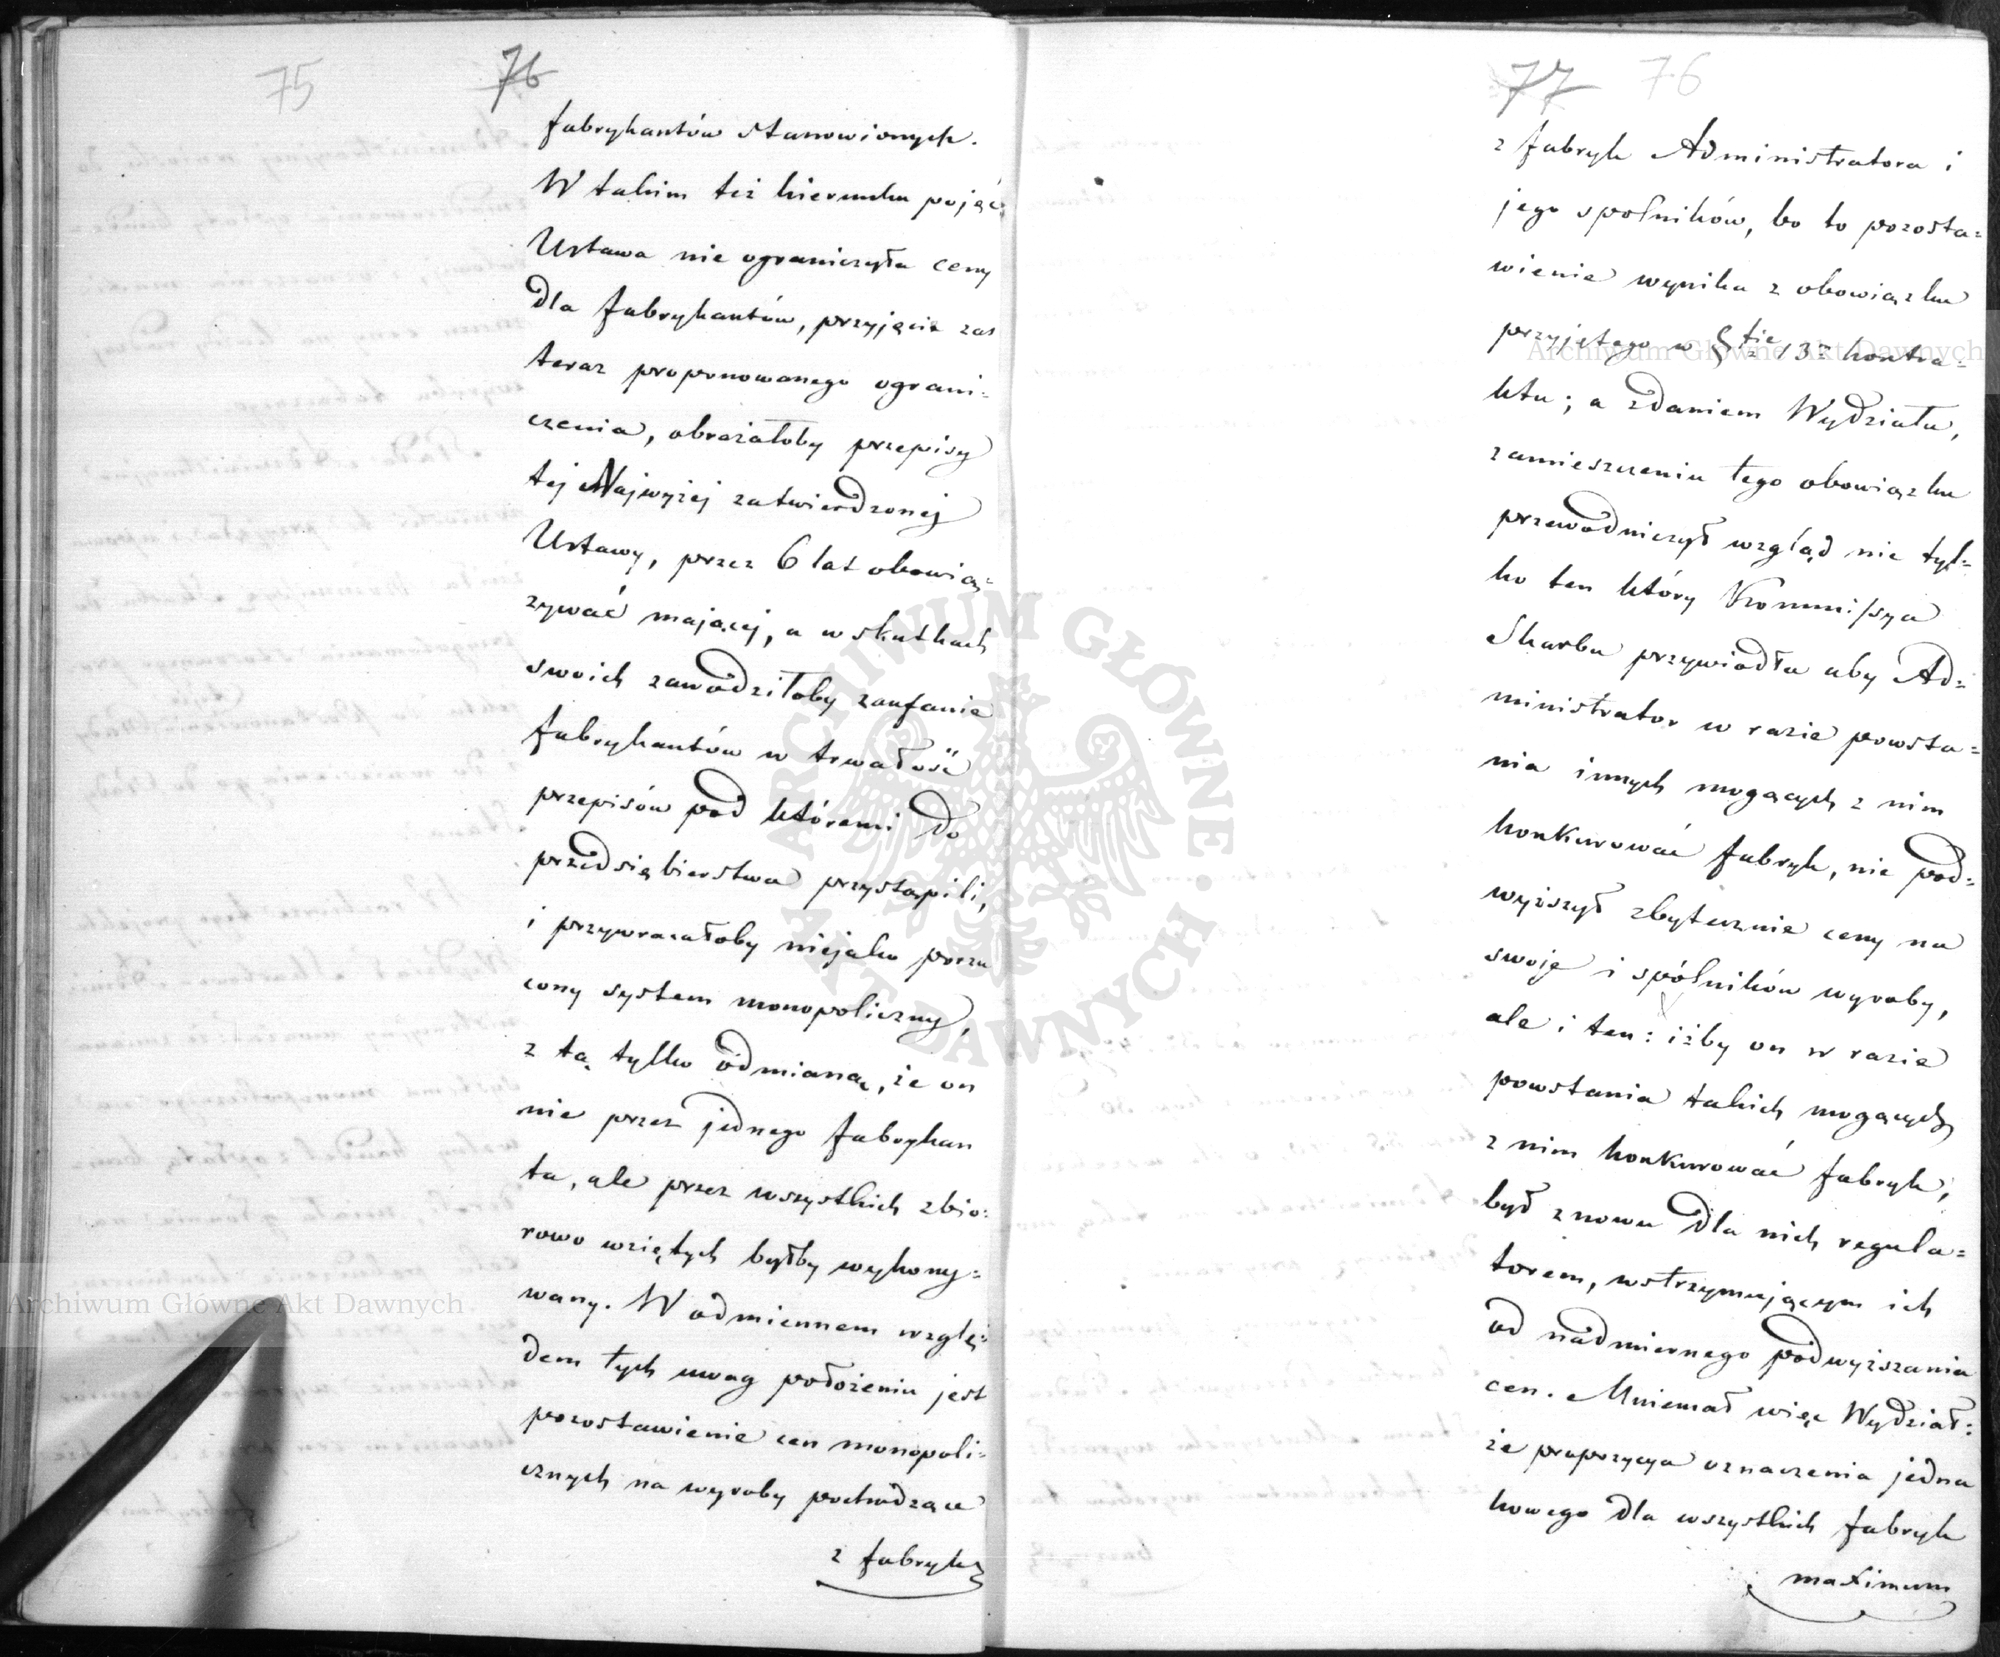 75 76
fabrykantów stanowionych.
W takim też kierunku pojęć
Ustawa nie ograniczyła ceny
dla fabrykantów, przyjęcie zaś
teraz proponowanego ograni=
czenia, obrażałoby przepisy
tej Najwyżej zatwierdzonej
Ustawy, przez 6 lat obowią=
zywać mającej, a w skutkach
swoich zawodziłoby zaufanie
fabrykantów w trwałość
przepisów pod któremi do
przedsiębierstwa przystąpili,
i przywracałoby niejako porzu
cony system monopoliczny,
z tą tylko odmianą, że on
nie przez jednego fabrykan
ta, ale przez wszystkich zbio=
rowo wziętych byłby wykony=
wany. W odmiennem wzglę=
dem tych uwag położeniu jest
pozostawienie cen monopoli=
cznych na wyroby pochodzące
z fabryk
77 76
z fabryk Administratora i
jego spólników, bo to pozosta=
wienie wynika z obowiązku
przyjętego w § tie 13m kontra=
ktu; a zdaniem Wydziału,
zamieszczeniu tego obowiązku
przewodniczył wzgląd nie tyl=
ko ten który Kommissya
Skarbu przywiodła aby Ad=
ministrator w razie powsta=
nia innych mogących z nim
konkurować fabryk, nie pod=
wyższył zbytecznie ceny na
swoje i spólników wyroby,
ale i ten: iżby on w razie
powstania takich mogących
z nim konkurować fabryk,
był znowu dla nich regula=
torem, wstrzymującym ich
od nadmiernego podwyższania
cen. Mniemał więc Wydział:
że propozycya oznaczenia jedna
kowego dla wszystkich fabryk
maximum
Archiwum Główne Akt Dawnych
Archiwum Główne Akt Dawnych
ARCHIWUM GŁÓWNE AKT DAWNYCH